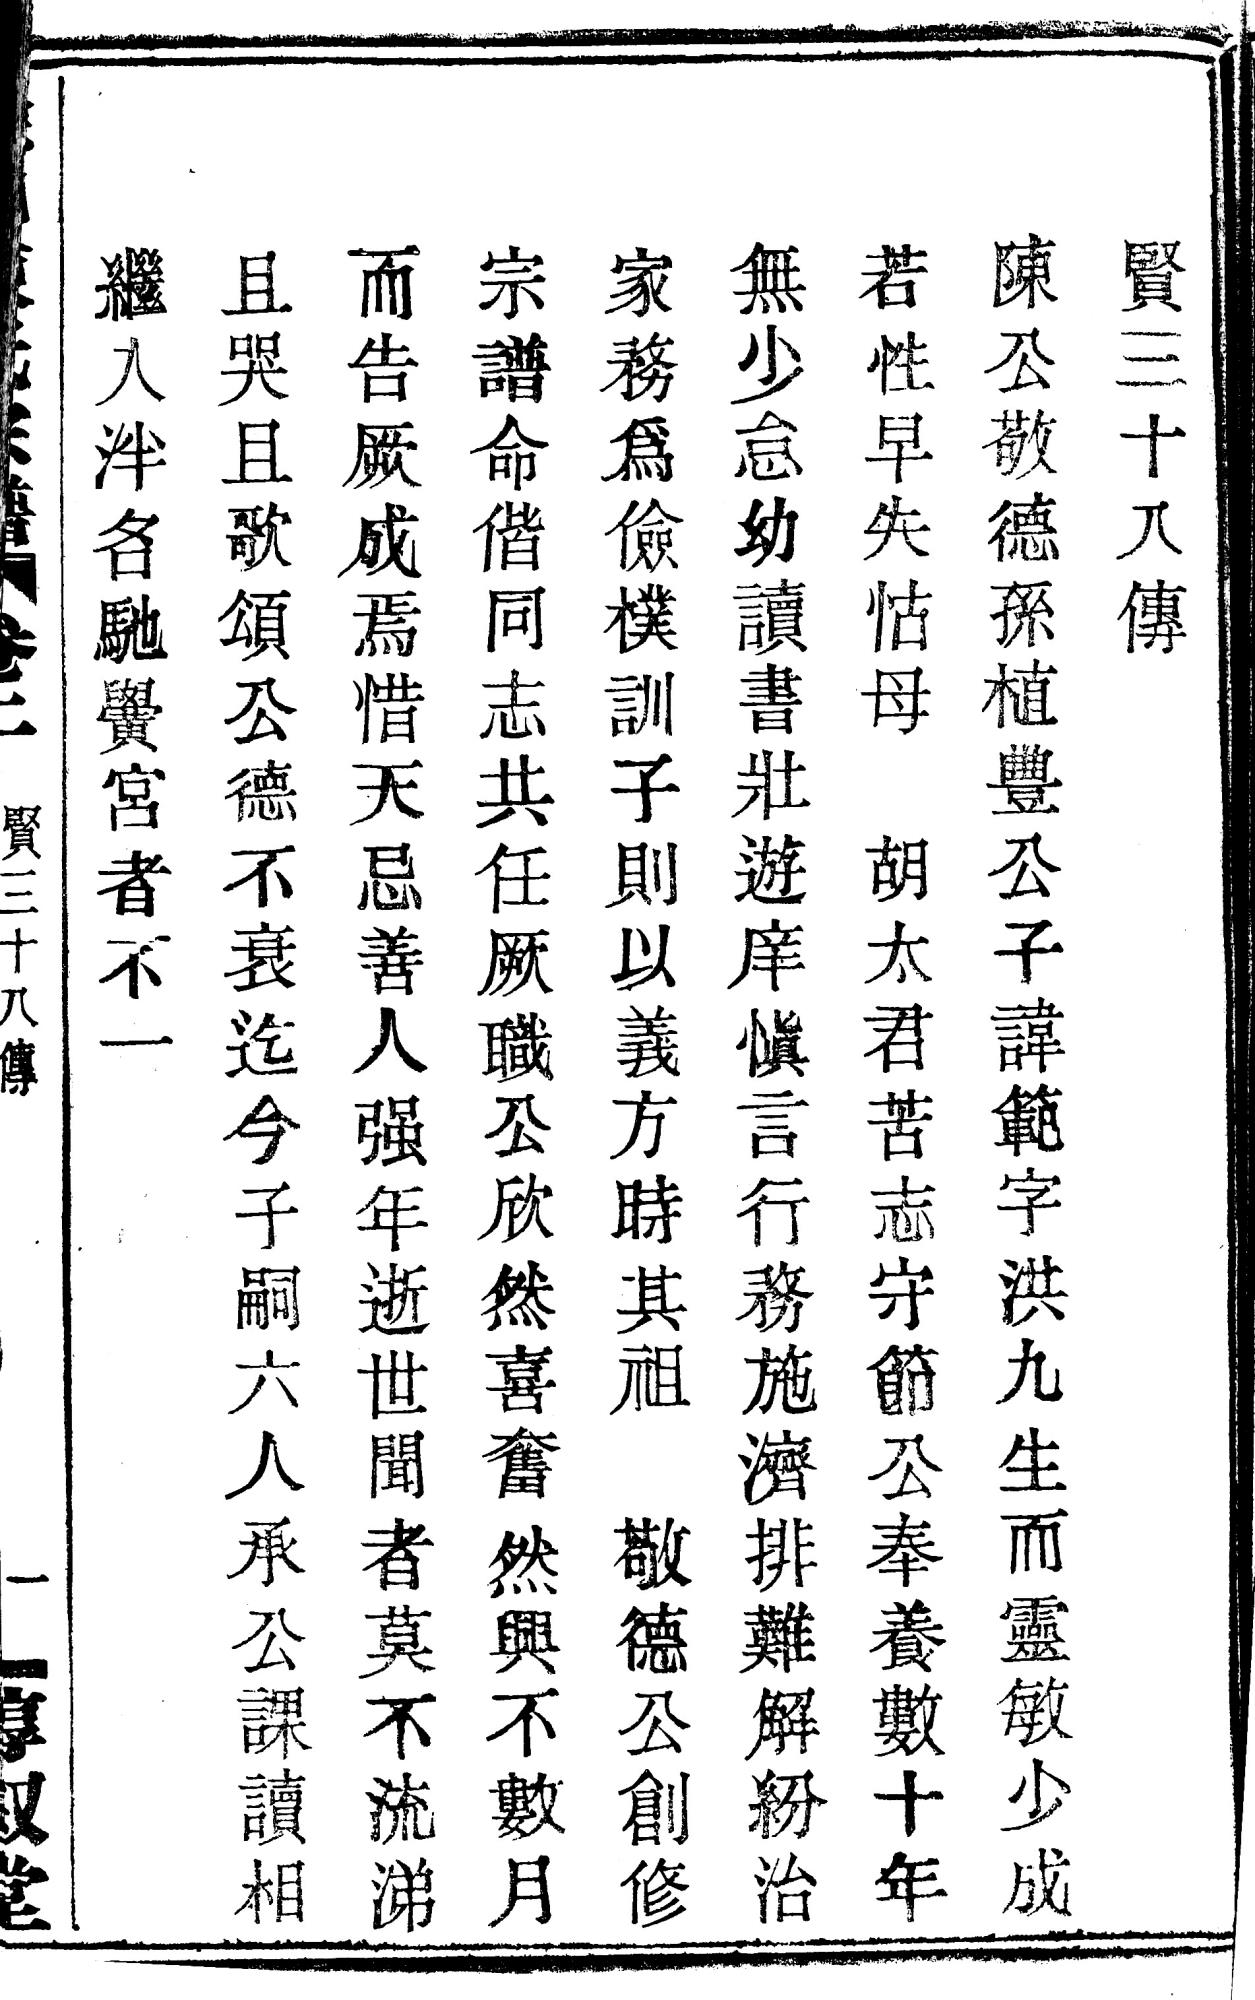 賢三十八傳
陳公敬德孫植豐公子諱範字洪九生而靈敏少成
若性早失怙母　胡太君苦志守節公奉養數十年
無少怠幼讀書壯遊庠愼言行務施濟排難解紛治
家務爲儉樸訓子則以義方時其祖　敬德公創修
宗譜命偕同志共任厥職公欣然喜奮然興不數月
而告厥成焉惜天忌善人强年逝世聞者莫不流涕
且哭且歌頌公德不衰迄今子嗣六人承公課讀相
繼入泮名馳黌宮者不一
賢三十八傳
一